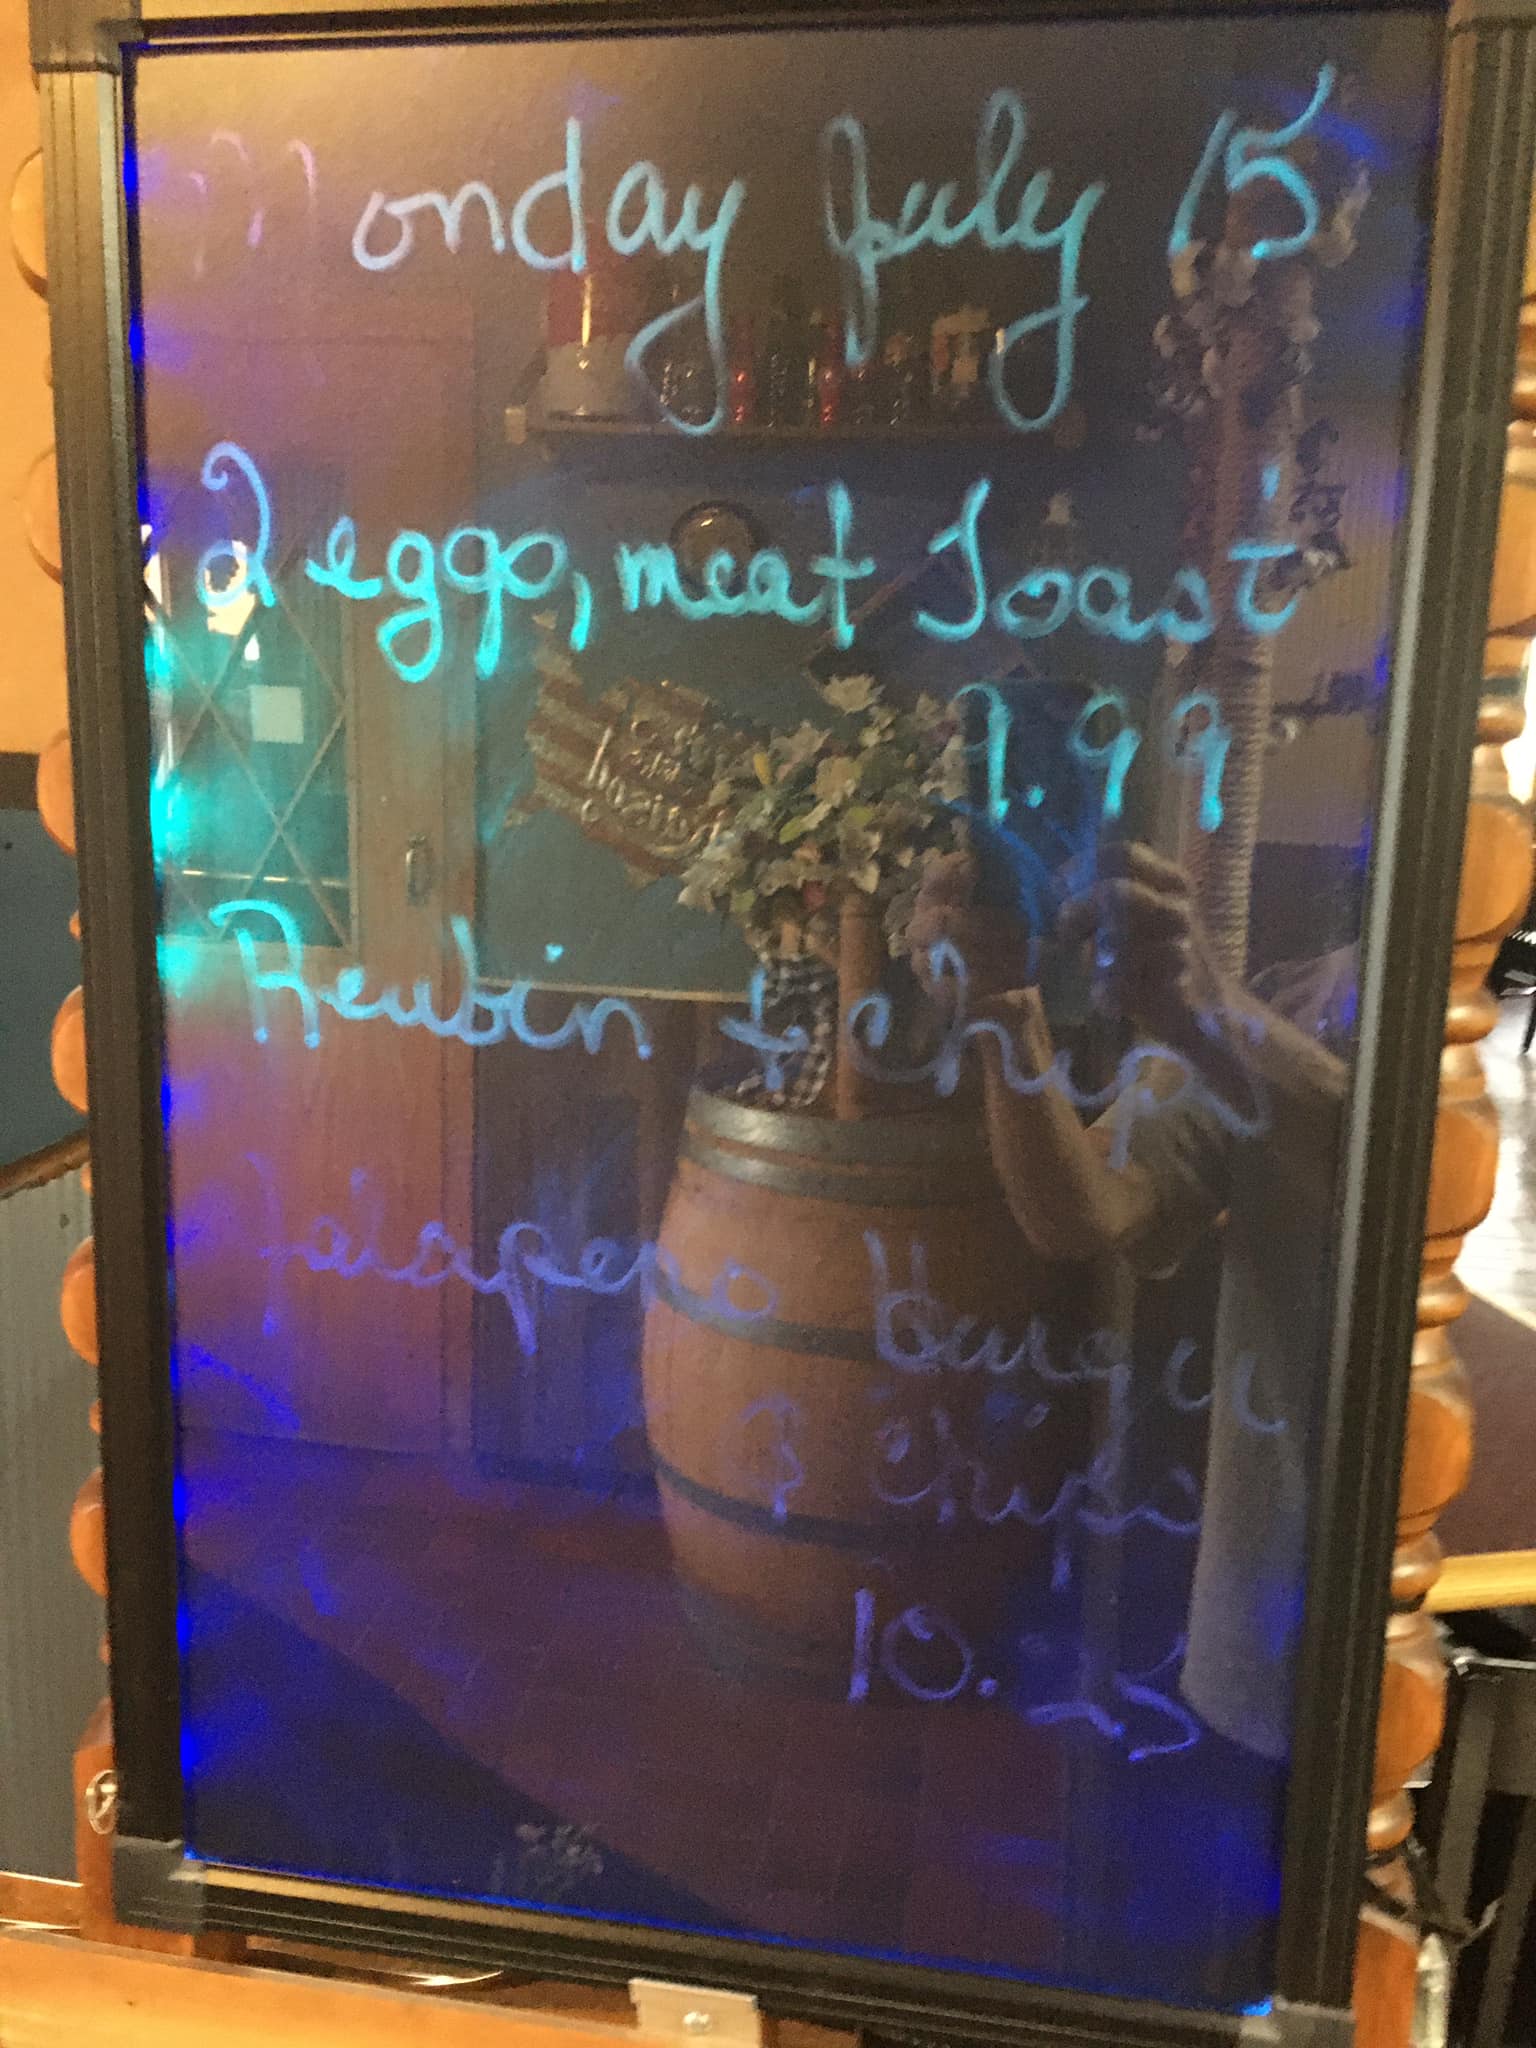 Monday July 15
2 eggs, meat Toast
9.99
Reubin & Chips
Jalapeno Burger
& Chips
10.25